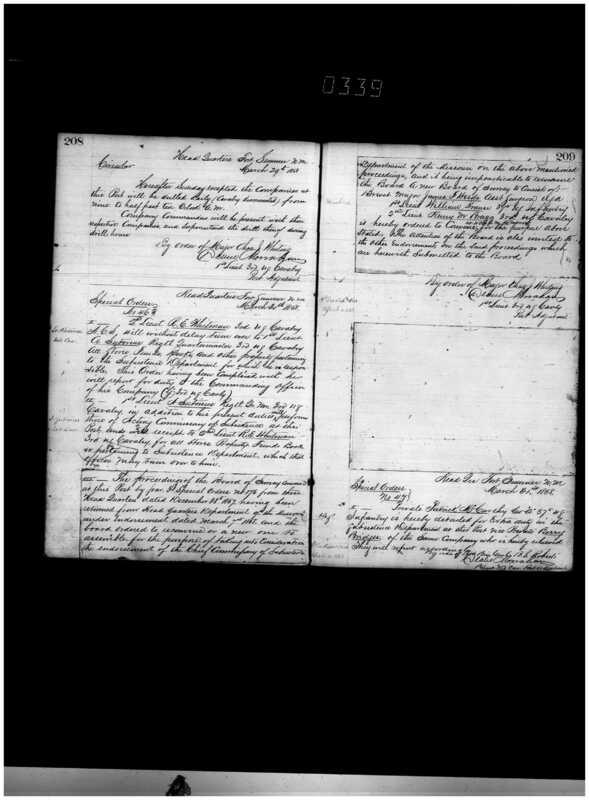 0339
208
Head Quarters Fort Sumner N.M.
March 29th 1868
Circular
Hereafter Sunday excepted the Companies at
this Post will be drilled daily (Cavalry dismounted) from
nine to half past ten Oclock A.M.
Company Commanders will be present with their
respective Companies and superintend the drill during
drill hours
By order of Major Chas J Whiting
1st Lieut 3rd U S Cavalry
Post Adjutant
Head Quarters Fort Sumner N.M.
March 30th 1868
Special Orders
No 46
I 2d Lieut R. E. Whitman 3rd U S Cavalry
A.C.S. will without delay turn over to 1st Lieut
Regtl Quartermaster 3rd U S Cavalry
all Stores Funds Books and other property pertaining
to the Subsistence Department for which he is respon
sible. This Order having been Complied with he
will report for duty to the Commanding Officer
of his Company 3rd U S Cavly
II 1st Lieut Regtl Q. M. 3rd U S
Cavalry in addition to his present duties will perform
those of Acting Commissary of Subsistence at this
Post and will receipt to 2nd Lieut R. E. Whitman
3rd U S Cavalry for all Stores Property Funds Books
pertaining to Subsistence Department which that
Officer may turn over to him
III The proceedings of the Board of Survey convened
at this Post by par Special Orders No 178 from these
Head Quarters dated December 28th 1867 having been
returned from Head Quarters Department of the Missouri
under indorsement dated March 7th 1868 and the
board ordered to reconvene or a new one to
assemble for the purpose of taking into Consideration
the endorsement of the Chief Commissary of Subsistence
209
Department of the Missouri on the above mentioned
proceedings, and it being impracticable to reconvene
the Board A new Board of Survey to Consist of
Brevet Major Asst Surgeon U.S.A.
1st Lieut William 37th U S Infantry
2nd Lieut 3rd U S Cavalry
is hereby ordered to Convene for the purpose above
Stated. The attention of the Board is also invited to
the other Endorsements on the said proceedings which
are herewith Submitted to the Board
By order of Major Chas J Whiting
1st Lieut 3rd U S Cavly
Post Adjt
Head Qrs Fort Sumner N.M.
March 31st 1868
Special Orders
No 47
I Private Patrick McCarthy Co 37th U S
Infantry is hereby detailed for Extra duty in the
Subsistence Department at this Post vice Private
of the Same Company who is hereby relieved
They will report accordingly